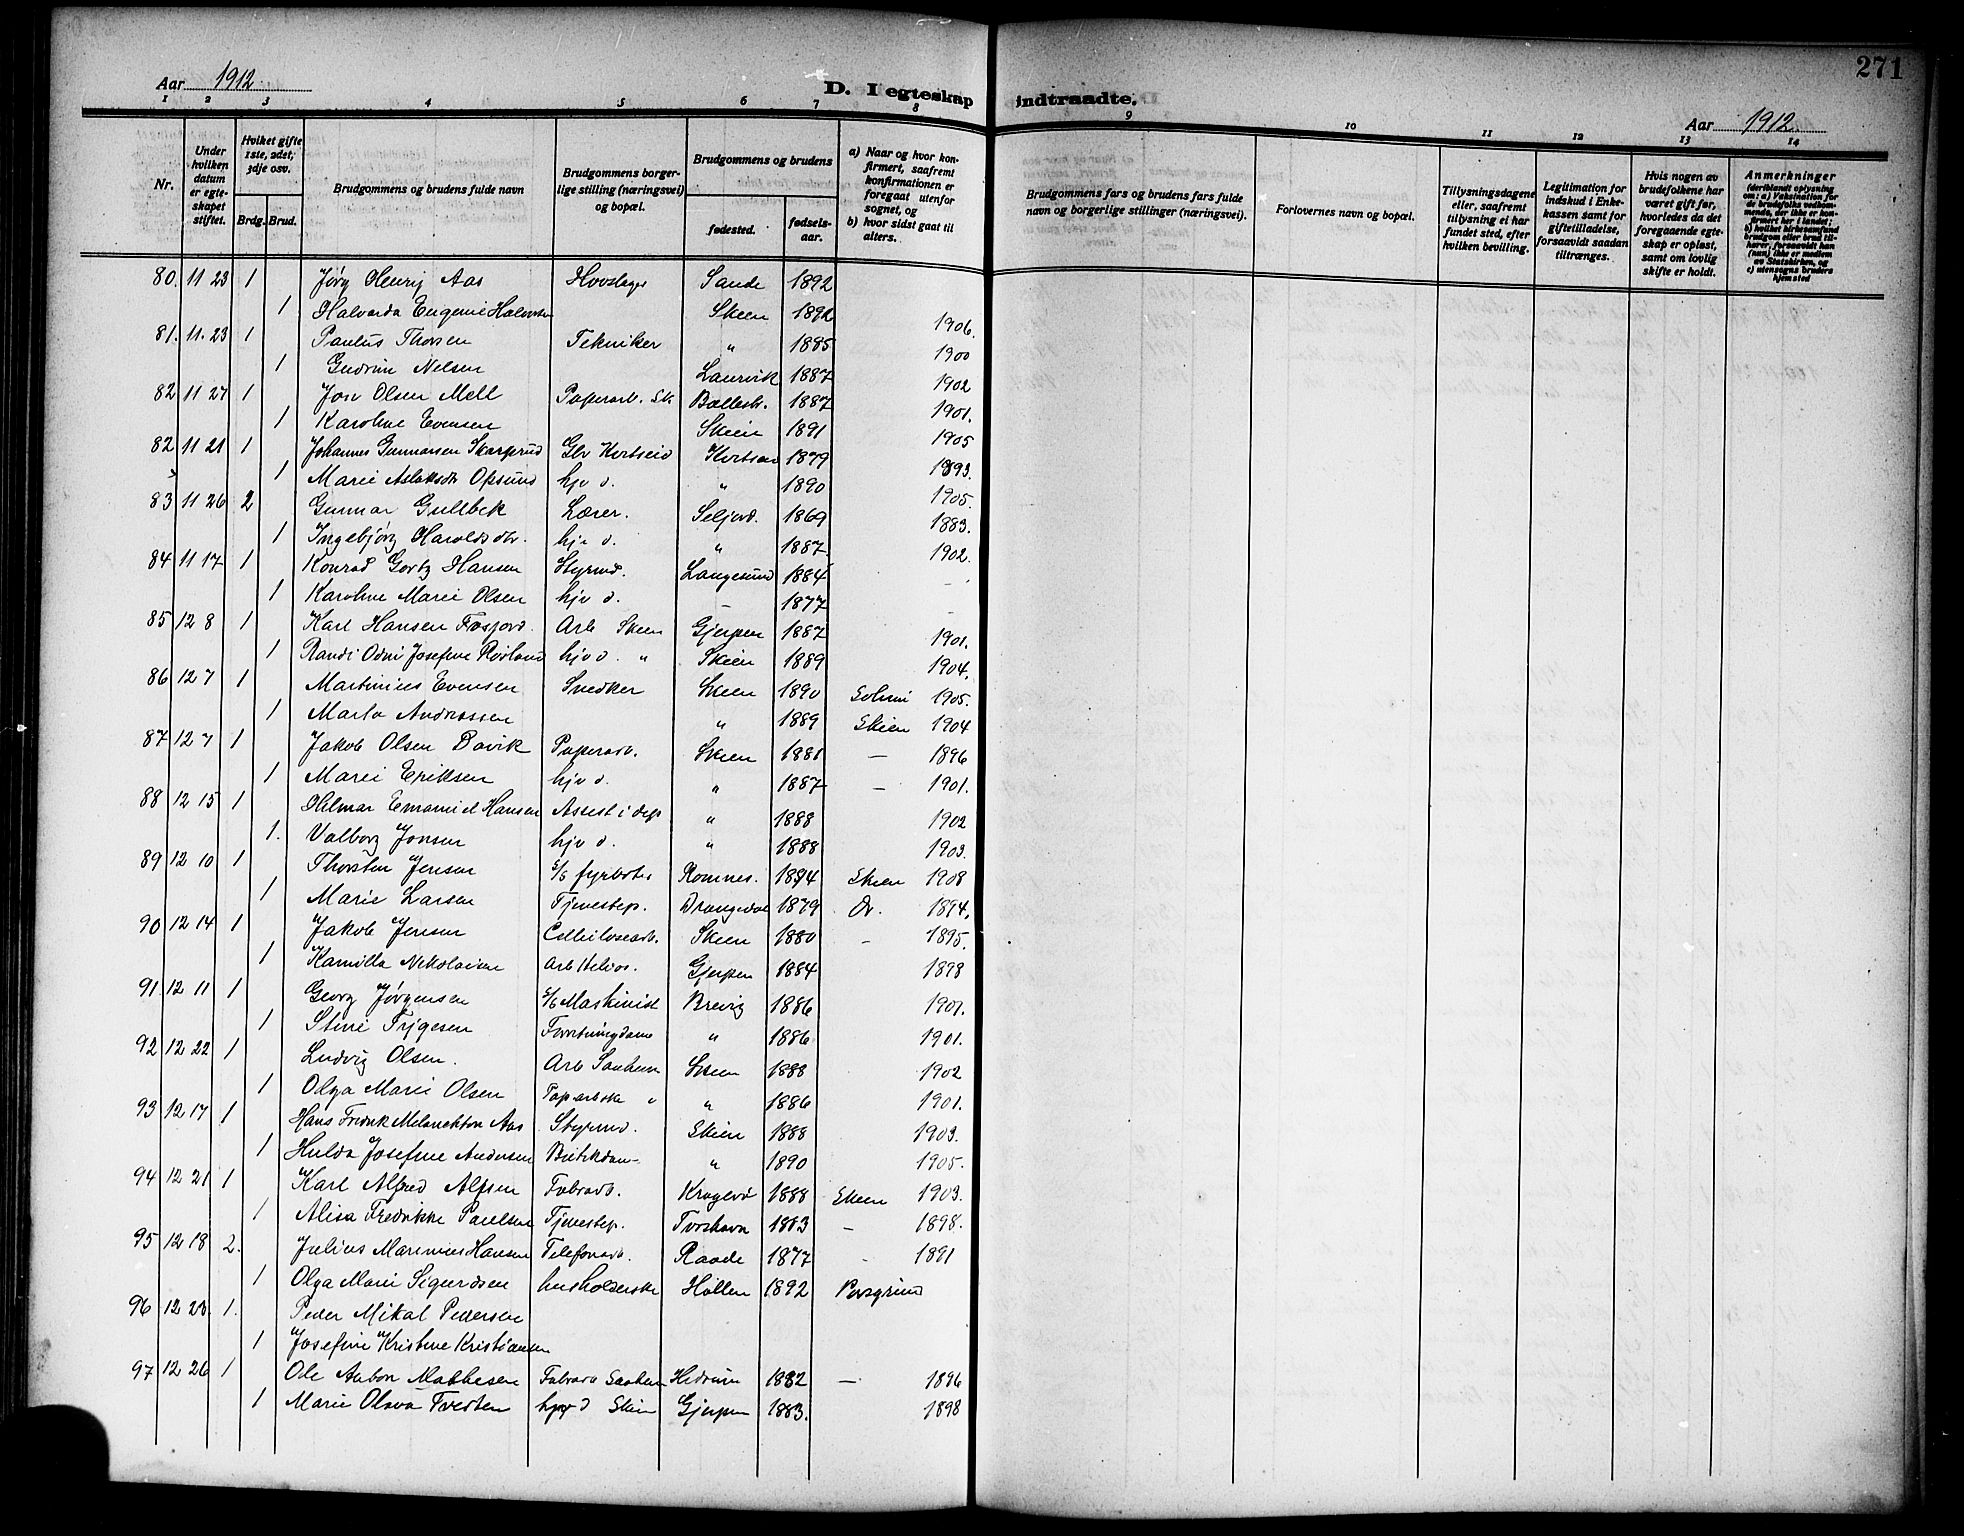 271
Aar 1912.
D. I egteskap indtraadte.
Aar 1912.
1 2 3 4 5 6 7 8 9 10 11 12 13 14
Nr.
Under hvilken datum er egteskapet stiftet.
Hvilket gifte 1ste, 2det, 3dje osv.
Brdg. Brud.
Brudgommens og brudens fulde navn
Brudgommens borgerlige stilling (næringsvei) og bopæl.
Brudgommens og brudens
fødested.
fødselsaar.
a) Naar og hvor konfirmert, saafremt konfirmationen er foregaat utenfor sognet, og
b) hvor sidst gaat til alters.
Brudgommens fars og brudens fars fulde navn og borgerlige stillinger (næringsvei).
Forlovernes navn og bopæl.
Tillysningsdagene eller, saafremt tillysning ei har fundet sted, efter hvilken bevilling.
Legitimation for indskud i Enkekassen samt for giftetilladelse, forsaavidt saadan tiltrænges.
Hvis nogen av brudefolkene har været gift før, hvorledes da det foregaaende egteskap er opløst, samt om lovlig skifte er holdt.
Anmerkninger
80. 11 23 1 Jørg Henrij Aas Hovslager Sande 1892
1 Halvarda Eugenie Halvorsen Skien 1892 1906.
81. 11. 23 1 Paulus Thorsen Tekniker " 1885 1900
1 Gudrun Nelsen Laurvik 1887 1902
82 11 27 1 Jon Olsen Mell Papirarb. Sk 1887 1901.
1 Karoline Evensen Skien 1891 1905
82 11 21 1 Johannes Gunnarsen Skarprud 1879 1893.
1 Marie Aslaksdtr Opsund hjv d. " 1890 1905.
83 11 26 2 Gunnar Gullbek Lærer. Seljord. 1869 1883.
1 Ingebjørg Haroldsdtr. hjv d. " 1887. 1902.
84 11 17 1 Konrad Gortz Hansen Styrmd. Langesund 1884 -
1 Karoline Marie Olsen hjv d. - 1877 -
85 12 8 1 Karl Hansen Fossjord. Arb Skien Gjerpen 1887 1901.
1 Randi Odni Josefine Rørland hjv d. " Skien 1889 1904.
86 12 7 1 Martinius Evensen Snedker Skien 1890 Solum 1905.
1 Marta Andreassen " 1889 Skien 1904
87 12 7 1 Jakob Olsen Papirarb. Skien 1881 - 1896
1 Marie Eriksen hjv d. " 1887 - 1901.
88 12 15 1 Hilmar Emanuel Hansen Assist i dep " 1888 1902
1. Valborg Jonsen hjv d. " 1888 1903.
89 12 10 1 Thorsten Jensen S/S fyrbøter Romnes. 1894 Skien 1908
1 Marie Larsen Tjenestep. Drangedal 1879 Dr. 1894.
90 12 14 1 Jakob Jensen Cellulosearb. Skien 1880 - 1895.
1 Kamilla Nikolaisen Arb Gjerpen 1884 1898
91. 12 11 1 Georg Jørgensen S/S Maskinist Brevig 1886 1901.
1 Stine Trygesen Forretningdame " 1886 1901.
92 12 22 1 Ludvig Olsen. Arb Skien 1888 1902
1 Olga Marie Olsen " " 1886 1901.
93 12 17 1 Hans Fredrik Melankton Aas Styrmd. Skien 1888 1903.
1 Hulda Josefine Andersen Butikdam- " 1890 1905.
94 12 21 1 Karl Alfred Alfsen Fabrarb. Kragerø 1888 Skien 1903.
1 Alisa Fredrikke Paulsen Tjenestep. Torshavn 1883 - 1898.
95 12 18 2. Julius Marinius Hansen Telefonarb. Raade 1877 - 1891
1 Olga Marie Sigurdsen husholderske Hollen 1892 Porsgrund
96 12 23. 1. Peder Mikal Pedersen
1 Josefine Kristine Kristiansen
97 12 26 1 Ole Anton Mathisen Fabrarb Hedrum 1882 - 1896
1 Marie Olava Tveten hjv d Skien Gjerpen 1883. 1898